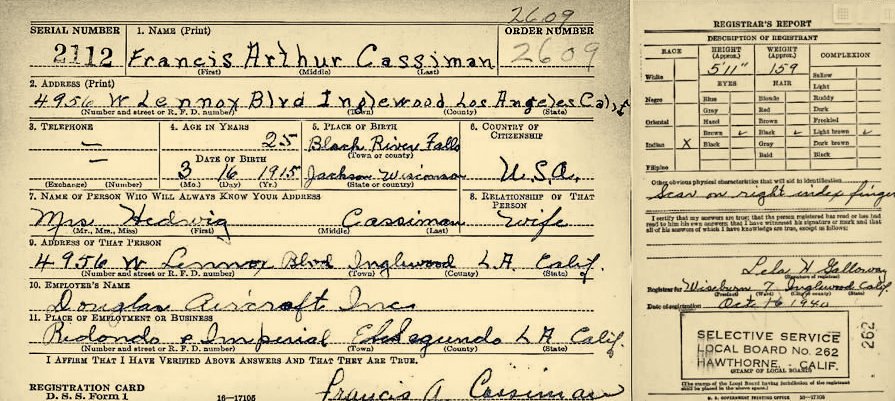 2609
SERIAL NUMBER
1. NAME (Print)
ORDER NUMBER
2112
Francis Arthur Cassiman
2609
(First) (Middle) (Last)
2. ADDRESS (Print)
4956 W Lennox Blvd Inglewood Los Angeles Calif
(Number and street or R. F. D. number) (Town) (County) (State)
3. TELEPHONE
4. AGE IN YEARS
5. PLACE OF BIRTH
6. COUNTRY OF CITIZENSHIP
25
Black River Falls
(Town or county)
DATE OF BIRTH
3 16 1915
Jackson Wisconsin
U.S.A.
(Exchange) (Number)
(Mo.) (Day) (Yr.)
(State or country)
7. NAME OF PERSON WHO WILL ALWAYS KNOW YOUR ADDRESS
8. RELATIONSHIP OF THAT PERSON
Mrs Hedwig Cassiman
wife
(Mr., Mrs., Miss) (First) (Middle) (Last)
9. ADDRESS OF THAT PERSON
4956 W Lennox Blvd Inglewood L.A. Calif.
(Number and street or R. F. D. number) (Town) (County) (State)
10. EMPLOYER'S NAME
Douglas Aircraft Inc
11. PLACE OF EMPLOYMENT OR BUSINESS
Redondo & Imperial El Segundo LA Calif.
(Number and street or R. F. D. number) (Town) (County) (State)
I AFFIRM THAT I HAVE VERIFIED ABOVE ANSWERS AND THAT THEY ARE TRUE.
REGISTRATION CARD
D. S. S. Form 1
16—17105
Francis A Cassiman
REGISTRAR'S REPORT
DESCRIPTION OF REGISTRANT
RACE
HEIGHT (Approx.)
WEIGHT (Approx.)
COMPLEXION
5'11"
159
White
Sallow
EYES
HAIR
Light
Negro
Blue
Blonde
Ruddy
Gray
Red
Dark
Oriental
Hazel
Brown
Freckled
Brown ✓
Black ✓
Light brown ✓
Indian X
Black
Gray
Dark brown
Bald
Black
Filipino
Other obvious physical characteristics that will aid in identification
Scar on right index finger
I certify that my answers are true; that the person registered has read or has had read to him his own answers; that I have witnessed his signature or mark and that all of his answers of which I have knowledge are true, except as follows:
Lela H Galloway
(Signature of registrar)
Registrar for Wiseburn 7 Inglewood Calif.
(Precinct) (Ward) (City or county) (State)
Date of registration Oct 16 1940
SELECTIVE SERVICE
LOCAL BOARD NO. 262
HAWTHORNE, CALIF.
(STAMP OF LOCAL BOARD)
262
(The stamp of the Local Board having jurisdiction of the registrant shall be placed in the above space.)
U. S. GOVERNMENT PRINTING OFFICE 16—17105